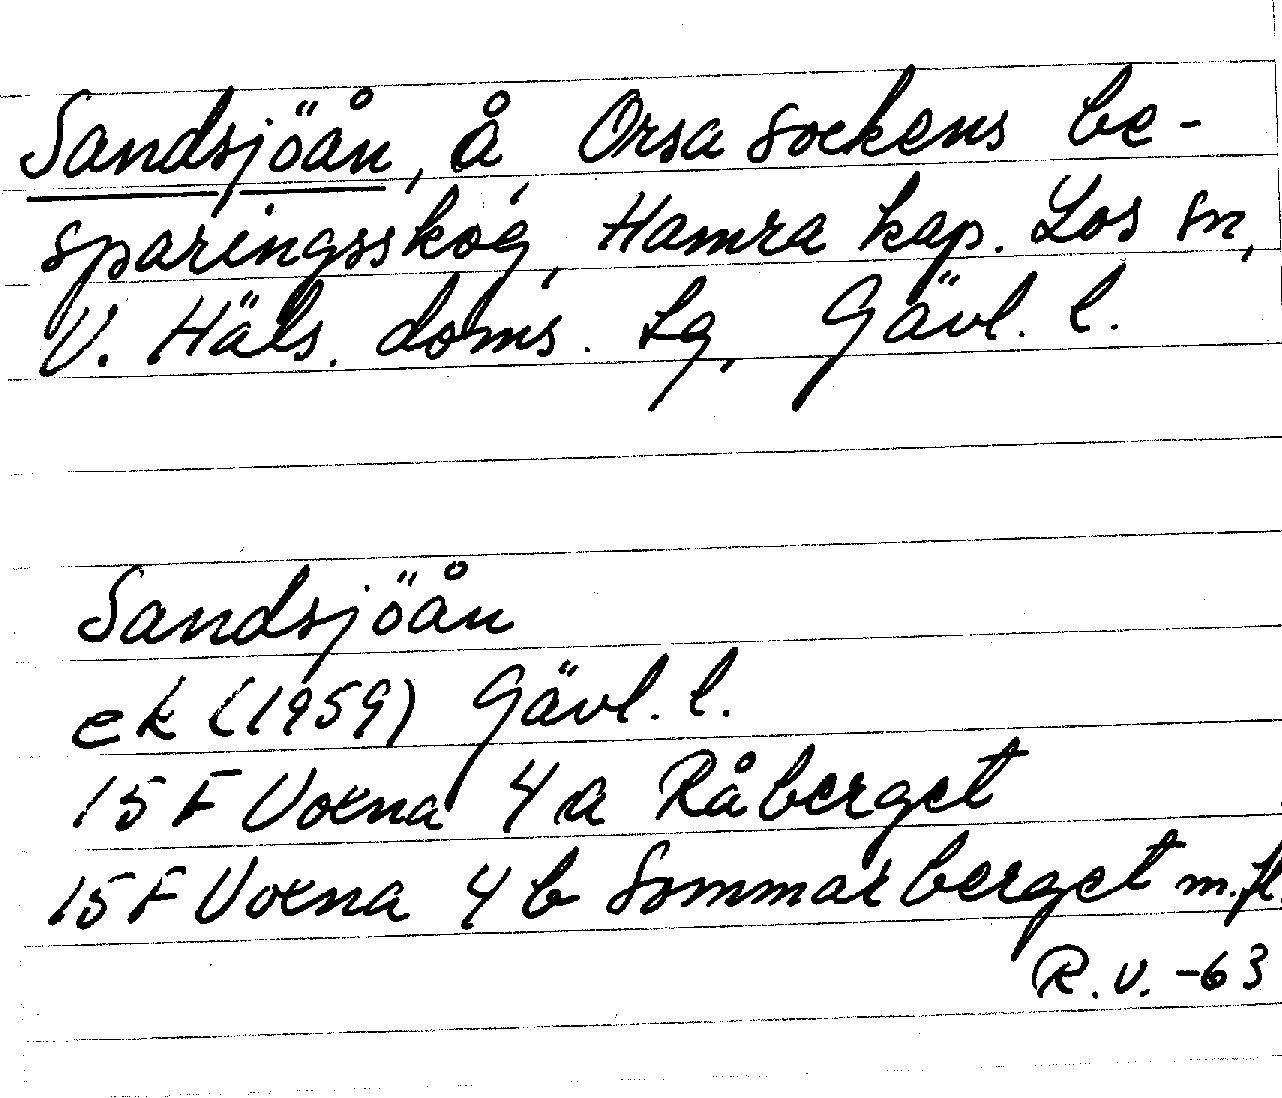 Sandsjöån, å, Orsa sockens be-
sparingsskog, Hamra kap. Los sn,
V. Häls. doms. sg, Gävl. l.
Sandsjöån
ek (1959) Gävl. l.
15 F Voxna 4 a Råberget
15 F Voxna 4 b Sommarberget m.fl.
R.V. -63